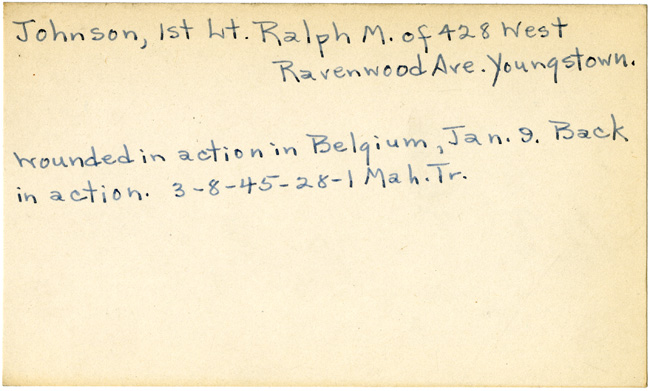 Johnson, 1st Lt. Ralph M. of 428 West
Ravenwood Ave. Youngstown.
wounded in action in Belgium, Jan. 9. Back
in action. 3-8-45-28-1 Mah. Tr.